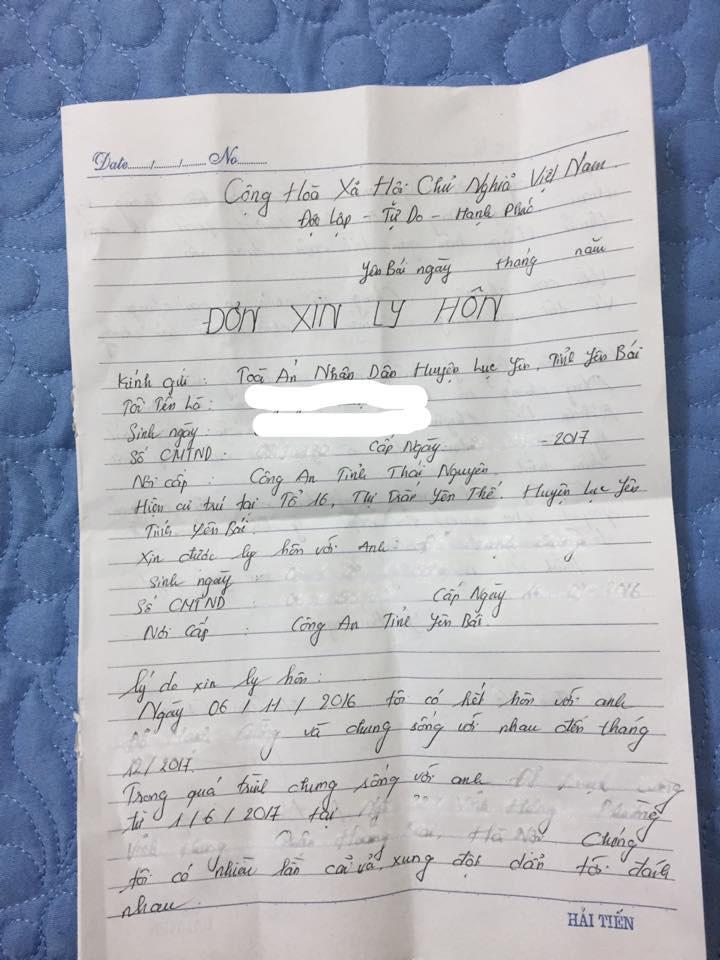 Date....../....../...... No..........
Cộng Hoà Xã Hội Chủ Nghĩa Việt Nam.
Độc Lập - Tự Do - Hạnh Phúc
Yên Bái ngày tháng năm
ĐƠN XIN LY HÔN
Kính gửi : Toà Án Nhân Dân Huyện Lục Yên, Tỉnh Yên Bái
Tôi Tên Là :
Sinh ngày :
Số CMTND : Cấp Ngày - 2017
Nơi cấp : Công An Tỉnh Thái Nguyên
Hiện cư trú tại Tổ 16, Thị Trấn Yên Thế. Huyện Lục Yên
Tỉnh Yên Bái.
Xin được ly hôn với Anh :
Sinh ngày
Số CMTND : Cấp Ngày 2016
Nơi Cấp : Công An Tỉnh Yên Bái
Lý do xin ly hôn :
Ngày 06 / 11 / 2016 tôi có kết hôn với anh
và chung sống với nhau đến tháng
12/2017.
Trong quá trình chung sống với anh
từ 1/6/2017 tại
Chồng
tôi có nhiều lần cãi vã, xung đột dẫn tới đánh
nhau.
HẢI TIẾN